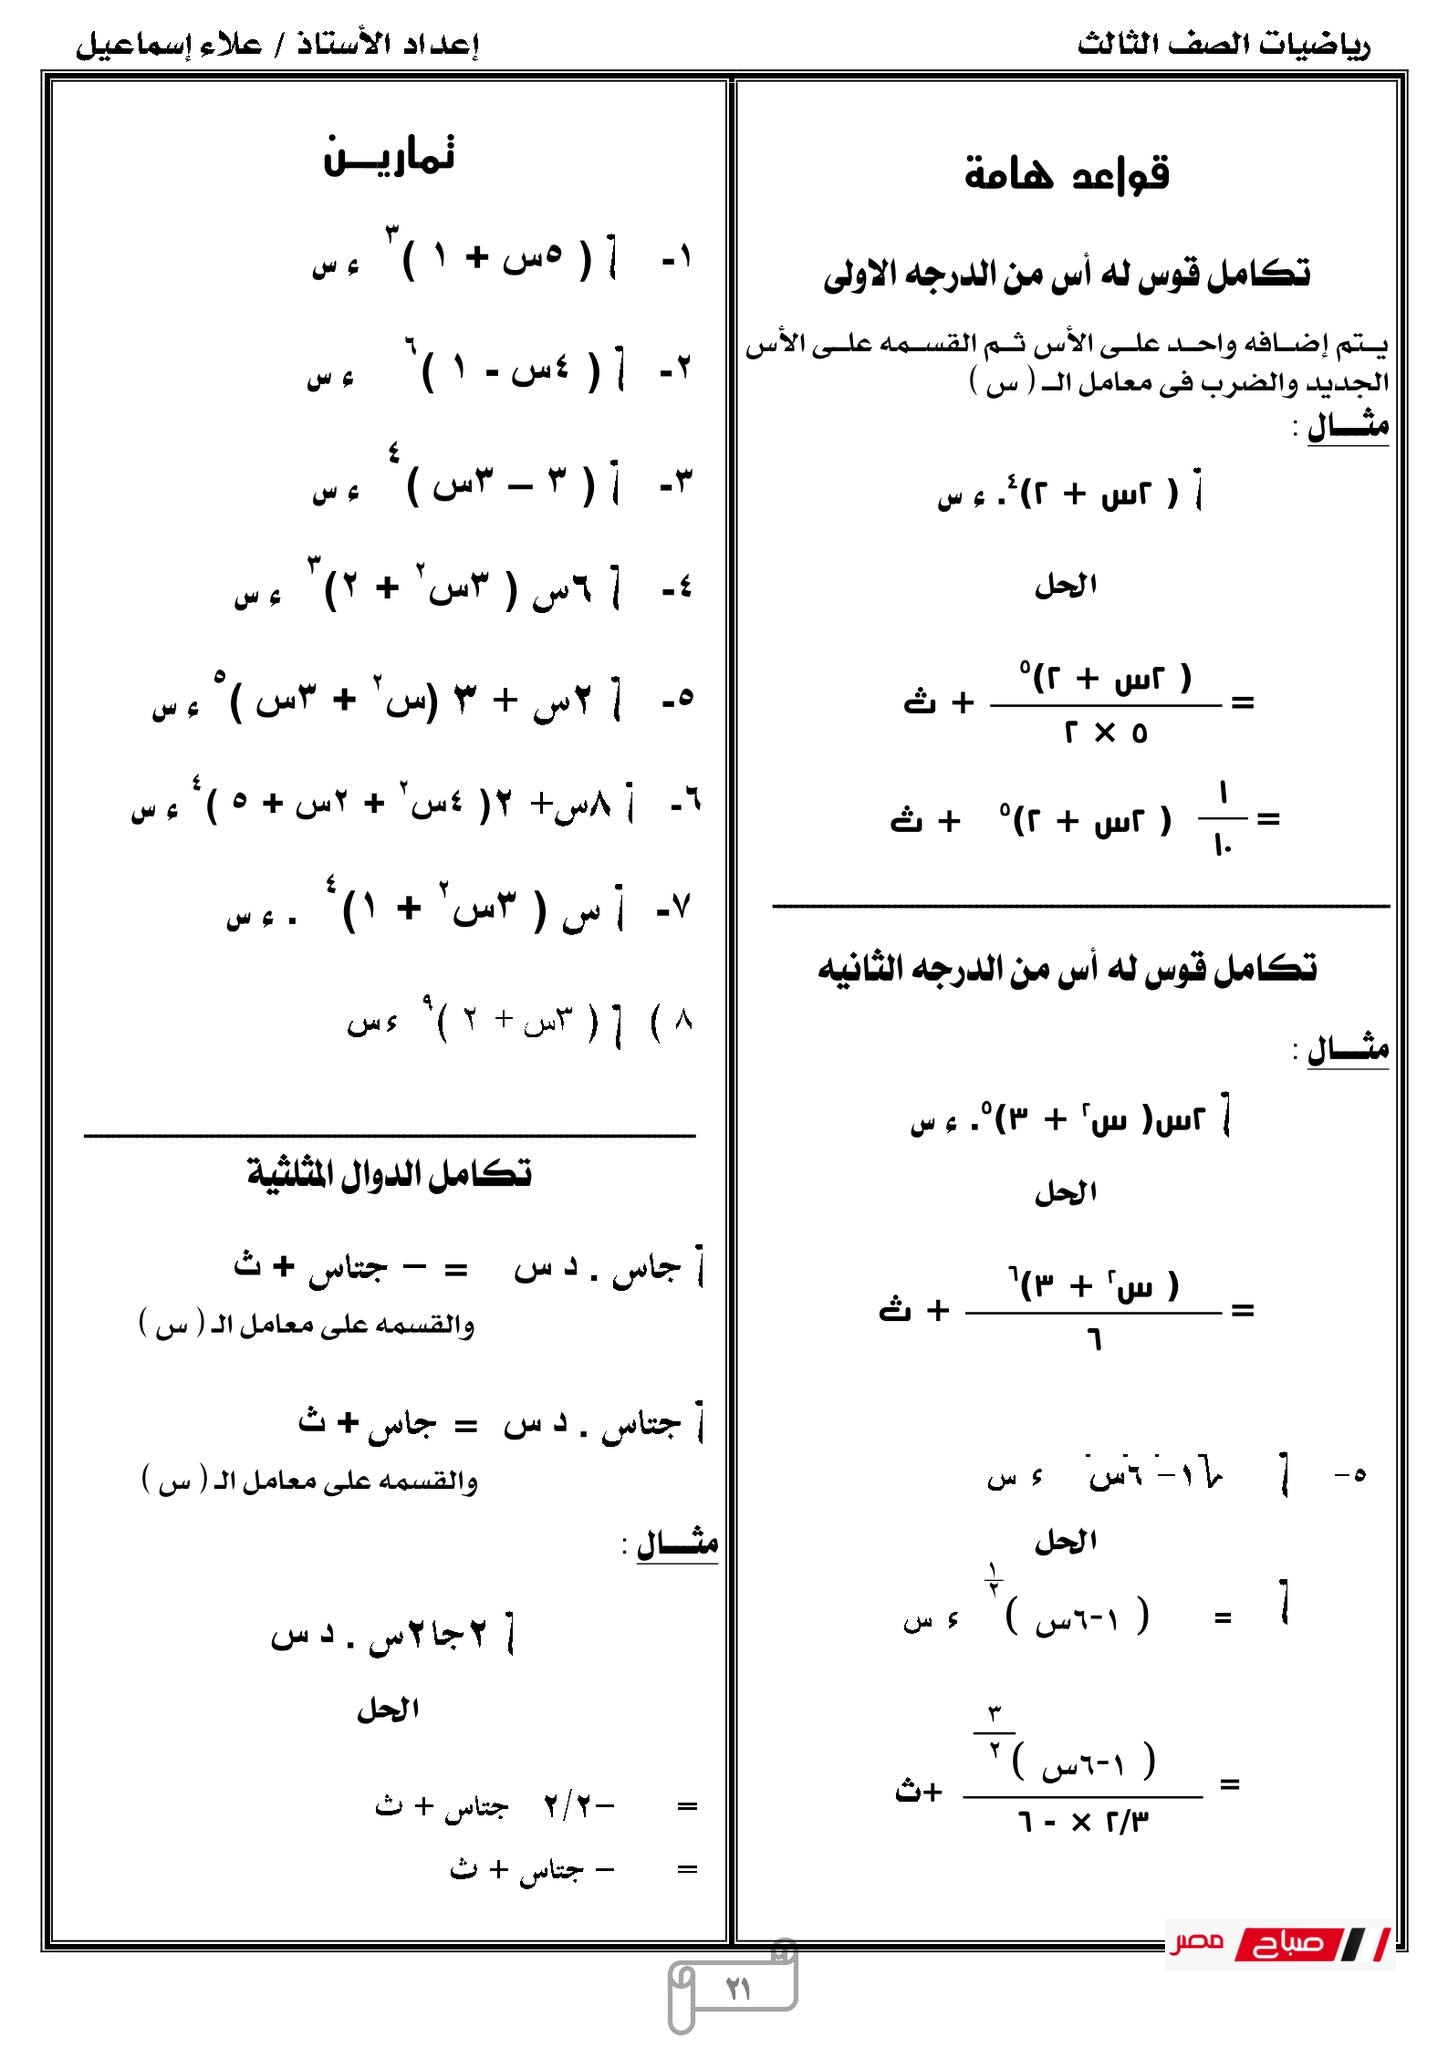 رياضيات الصف الثالث
إعداد الأستاذ / علاء إسماعيل
قواعد هامة
تكامل قوس له أس من الدرجه الاولى
يــتم إضــافه واحــد علــى الأس ثــم القسـمه علــى الأس
الجديد والضرب فى معامل الـ ( س )
مثــــال :
أ ( ٢س + ٢)⁴. ء س
الحل
= ( ٢س + ٢)⁵ / ٥ × ٢ + ث
= ١/١٠ ( ٢س + ٢)⁵ + ث
تكامل قوس له أس من الدرجه الثانيه
مثــــال :
أ ٢س( س² + ٣)⁵. ء س
الحل
= ( س² + ٣)⁶ / ٦ + ث
٥- أ √١-٦س ء س
الحل
أ = ( ١-٦س )^(١/٢) ء س
= ( ١-٦س )^(٣/٢) / ٢/٣ × - ٦ +ث
تمـاريـــن
١- أ ( ٥س + ١ )³ ء س
٢- أ ( ٤س - ١ )⁶ ء س
٣- أ ( ٣ – ٣س )⁴ ء س
٤- أ ٦س ( ٣س² + ٢)³ ء س
٥- أ ٢س + ٣ (س² + ٣س )⁵ ء س
٦- أ ٨س+ ٢( ٤س² + ٢س + ٥ )⁴ ء س
٧- أ س ( ٣س² + ١)⁴ . ء س
٨ ) أ ( ٣س + ٢ )⁹ ء س
تكامل الدوال المثلثية
أ جاس . د س = – جتاس + ث
والقسمه على معامل الـ ( س )
أ جتاس . د س = جاس + ث
والقسمه على معامل الـ ( س )
مثــــال :
أ ٢جا٢س . د س
الحل
= –٢/٢ جتاس + ث
= – جتاس + ث
صباح مصر
٢١